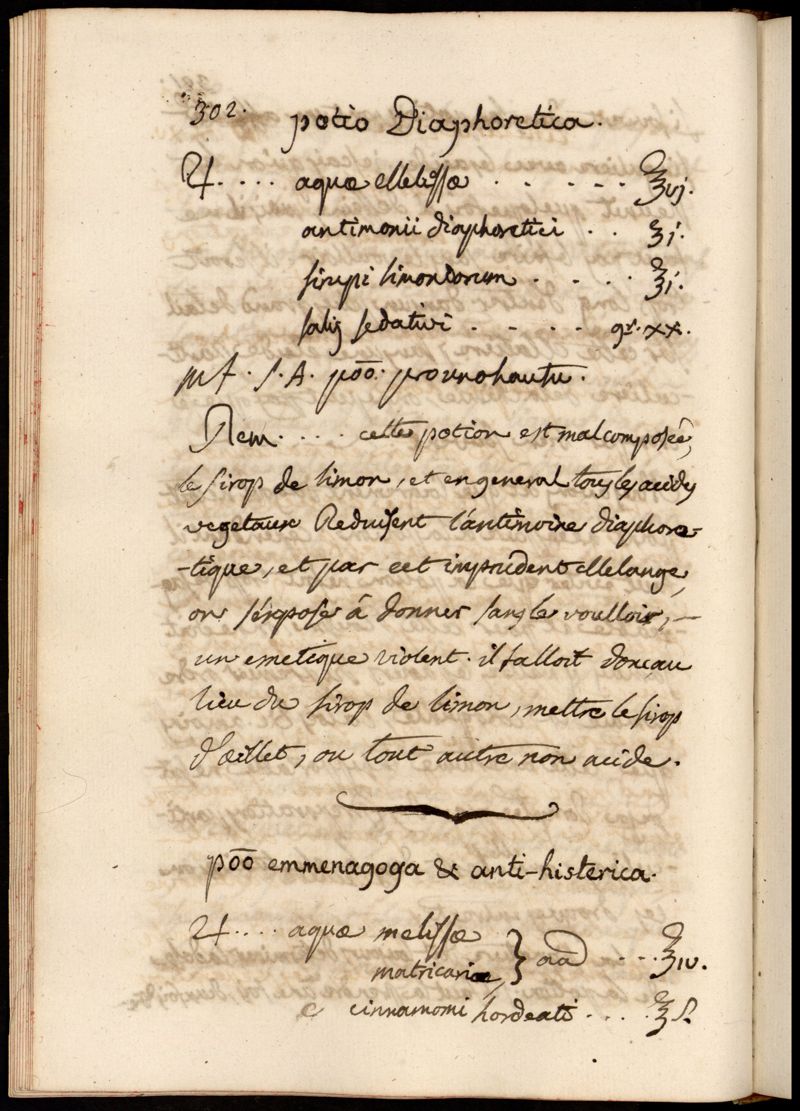 302.
potio Diaphoretica.
♃. . . . aquæ Melissæ . . . . . . ℥vj.
antimonii diaphoretici . . ʒj.
sirupi limondorum . . . . ℥j.
salis sedativi . . . . gr. xx.
mf. S. A. põõ. pro uno haustu.
Rem. . . . . cette potion est mal composée,
le sirop de limon, et en general tous les acides
vegetaux Reduisent l'antimoine diaphore-
-tique, et par cet imprudent Mélange,
on s'éxpose â donner sans le voulloir, —
un emetique violent. il falloit donc au
lieu du sirop de limon, mettre le sirop
d'œillet, ou tout autre non acide.
põõ emmenagoga & anti-histerica.
♃. . . . aquæ melissæ
matricariæ } aã . . . ℥iv.
c cinnamomi hordeati . . . . ℥ s.